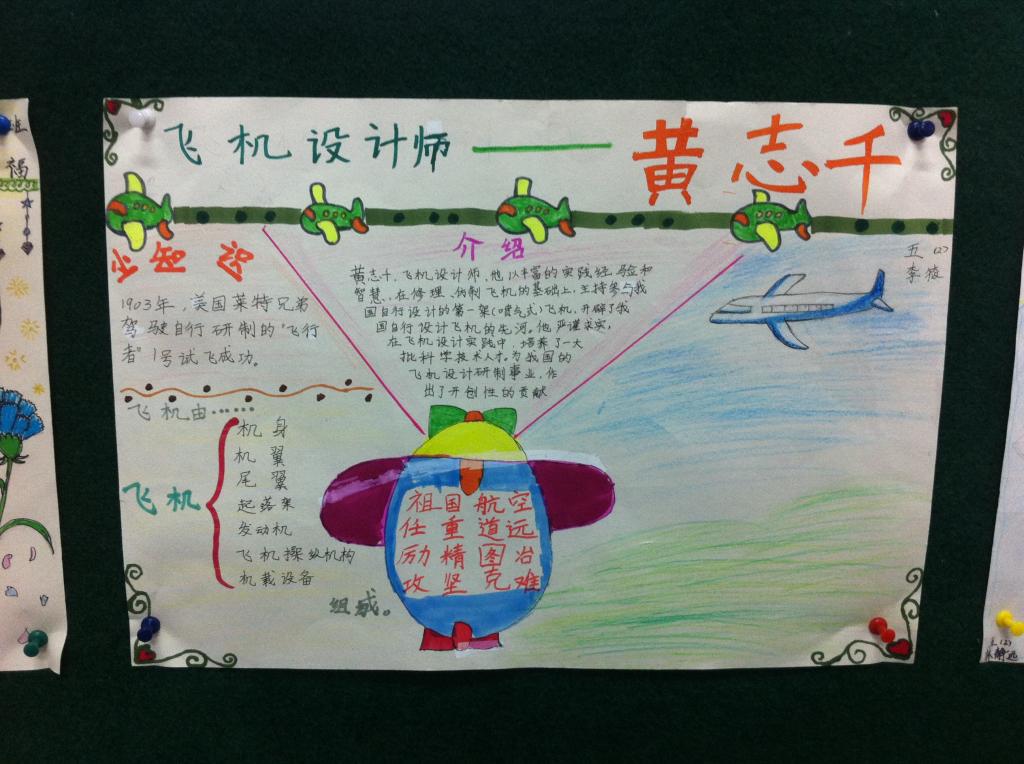 飞机设计师——黄志千
五(2)
李棱
小知识
1903年,美国莱特兄弟
驾驶自行研制的"飞行
者"1号试飞成功。
介绍
黄志千,飞机设计师,他以丰富的实践经验和
智慧,在修理、仿制飞机的基础上,主持参与我
国自行设计的第一架(喷气式)飞机,开辟了我
国自行设计飞机的先河。他严谨求实,
在飞机设计实践中,培养了一大
批科学技术人才。为我国的
飞机设计研制事业,作
出了开创性的贡献
飞机由……
飞机
机身
机翼
尾翼
起落架
发动机
飞机操纵机构
机载设备
组成。
祖国航空
任重道远
励精图治
攻坚克难
福